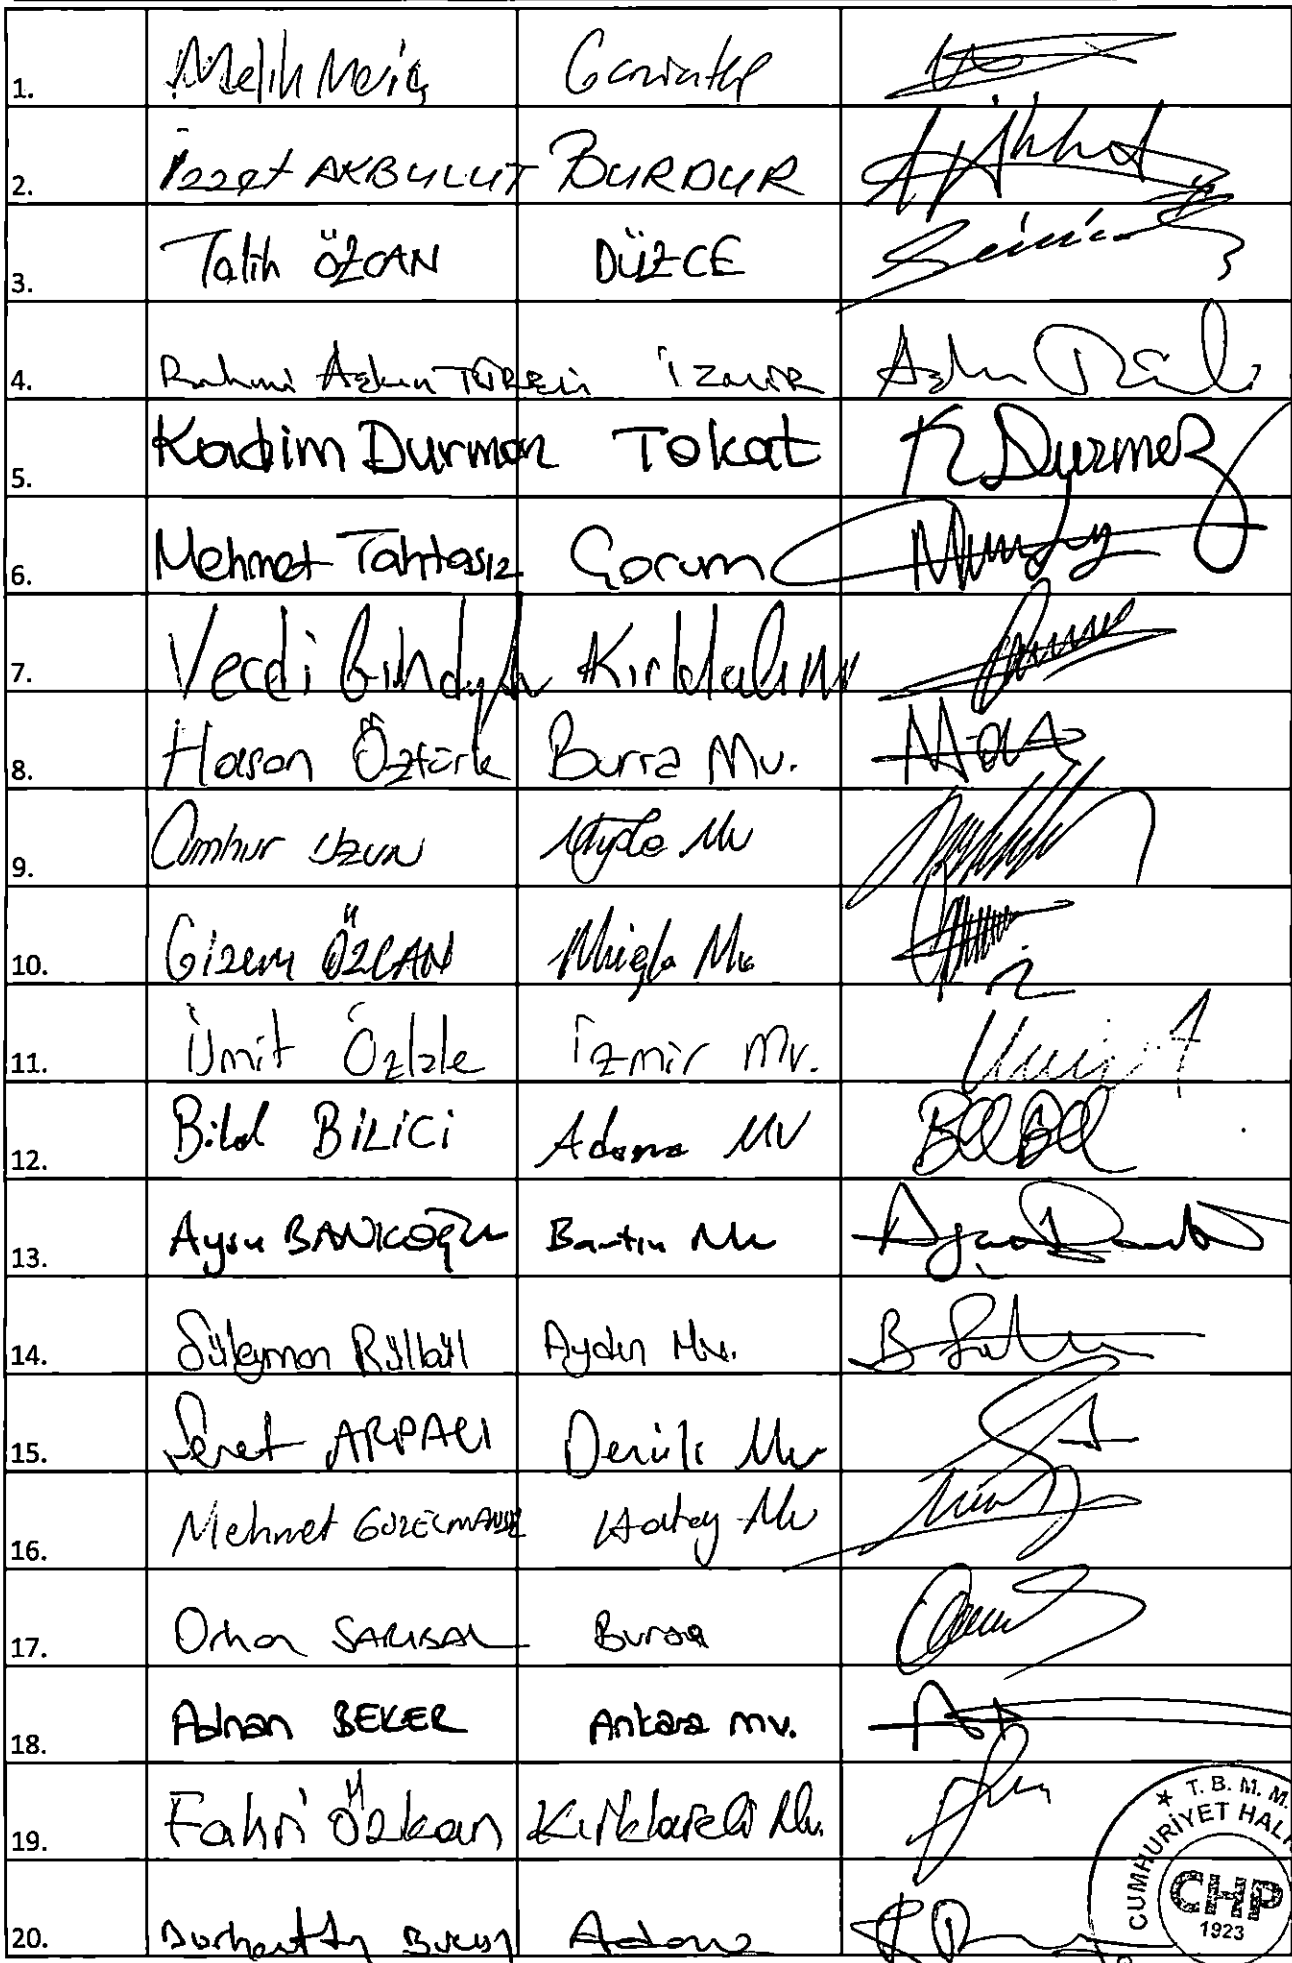 1. Melih Meriç Gaziantep
2. İzzet AKBULUT BURDUR
3. Talih ÖZCAN DÜZCE
4. Rahmi Aşkın TÜRELİ İZMİR
5. Kadim Durmaz Tokat K.Durmaz
6. Mehmet Tahtasız Çorum
7. Vecdi Gündoğdu Kırklareli Mv
8. Hasan Öztürk Bursa Mv.
9. Cumhur UZUN Muğla Mv
10. Gizem ÖZCAN Muğla Mv.
11. Ümit Özlale İzmir Mv. Ümit
12. Bilal BİLİCİ Adana MV
13. Aysu BANKOĞLU Bartın Mv
14. Süleyman Bülbül Aydın Mv.
15. Şeref ARPACI Denizli Mv
16. Mehmet GÜZELMANSUR Hatay Mv
17. Orhan SARIBAL Bursa
18. Adnan BEKER Ankara mv.
19. Fahri Özkan Kırklareli Mv.
20. Burhanettin Bulut Adana
★ T. B. M. M.
CUMHURİYET HALK
CHP
1923